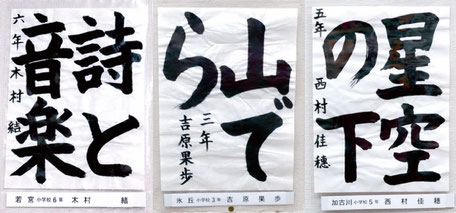 詩と
音楽
六年 木村 結
若宮小学校6年 木村 結
山で
ら
三年
吉原果歩
氷丘小学校3年 吉原果歩
星空
の下
五年 西村佳穂
加古川小学校5年 西村佳穂